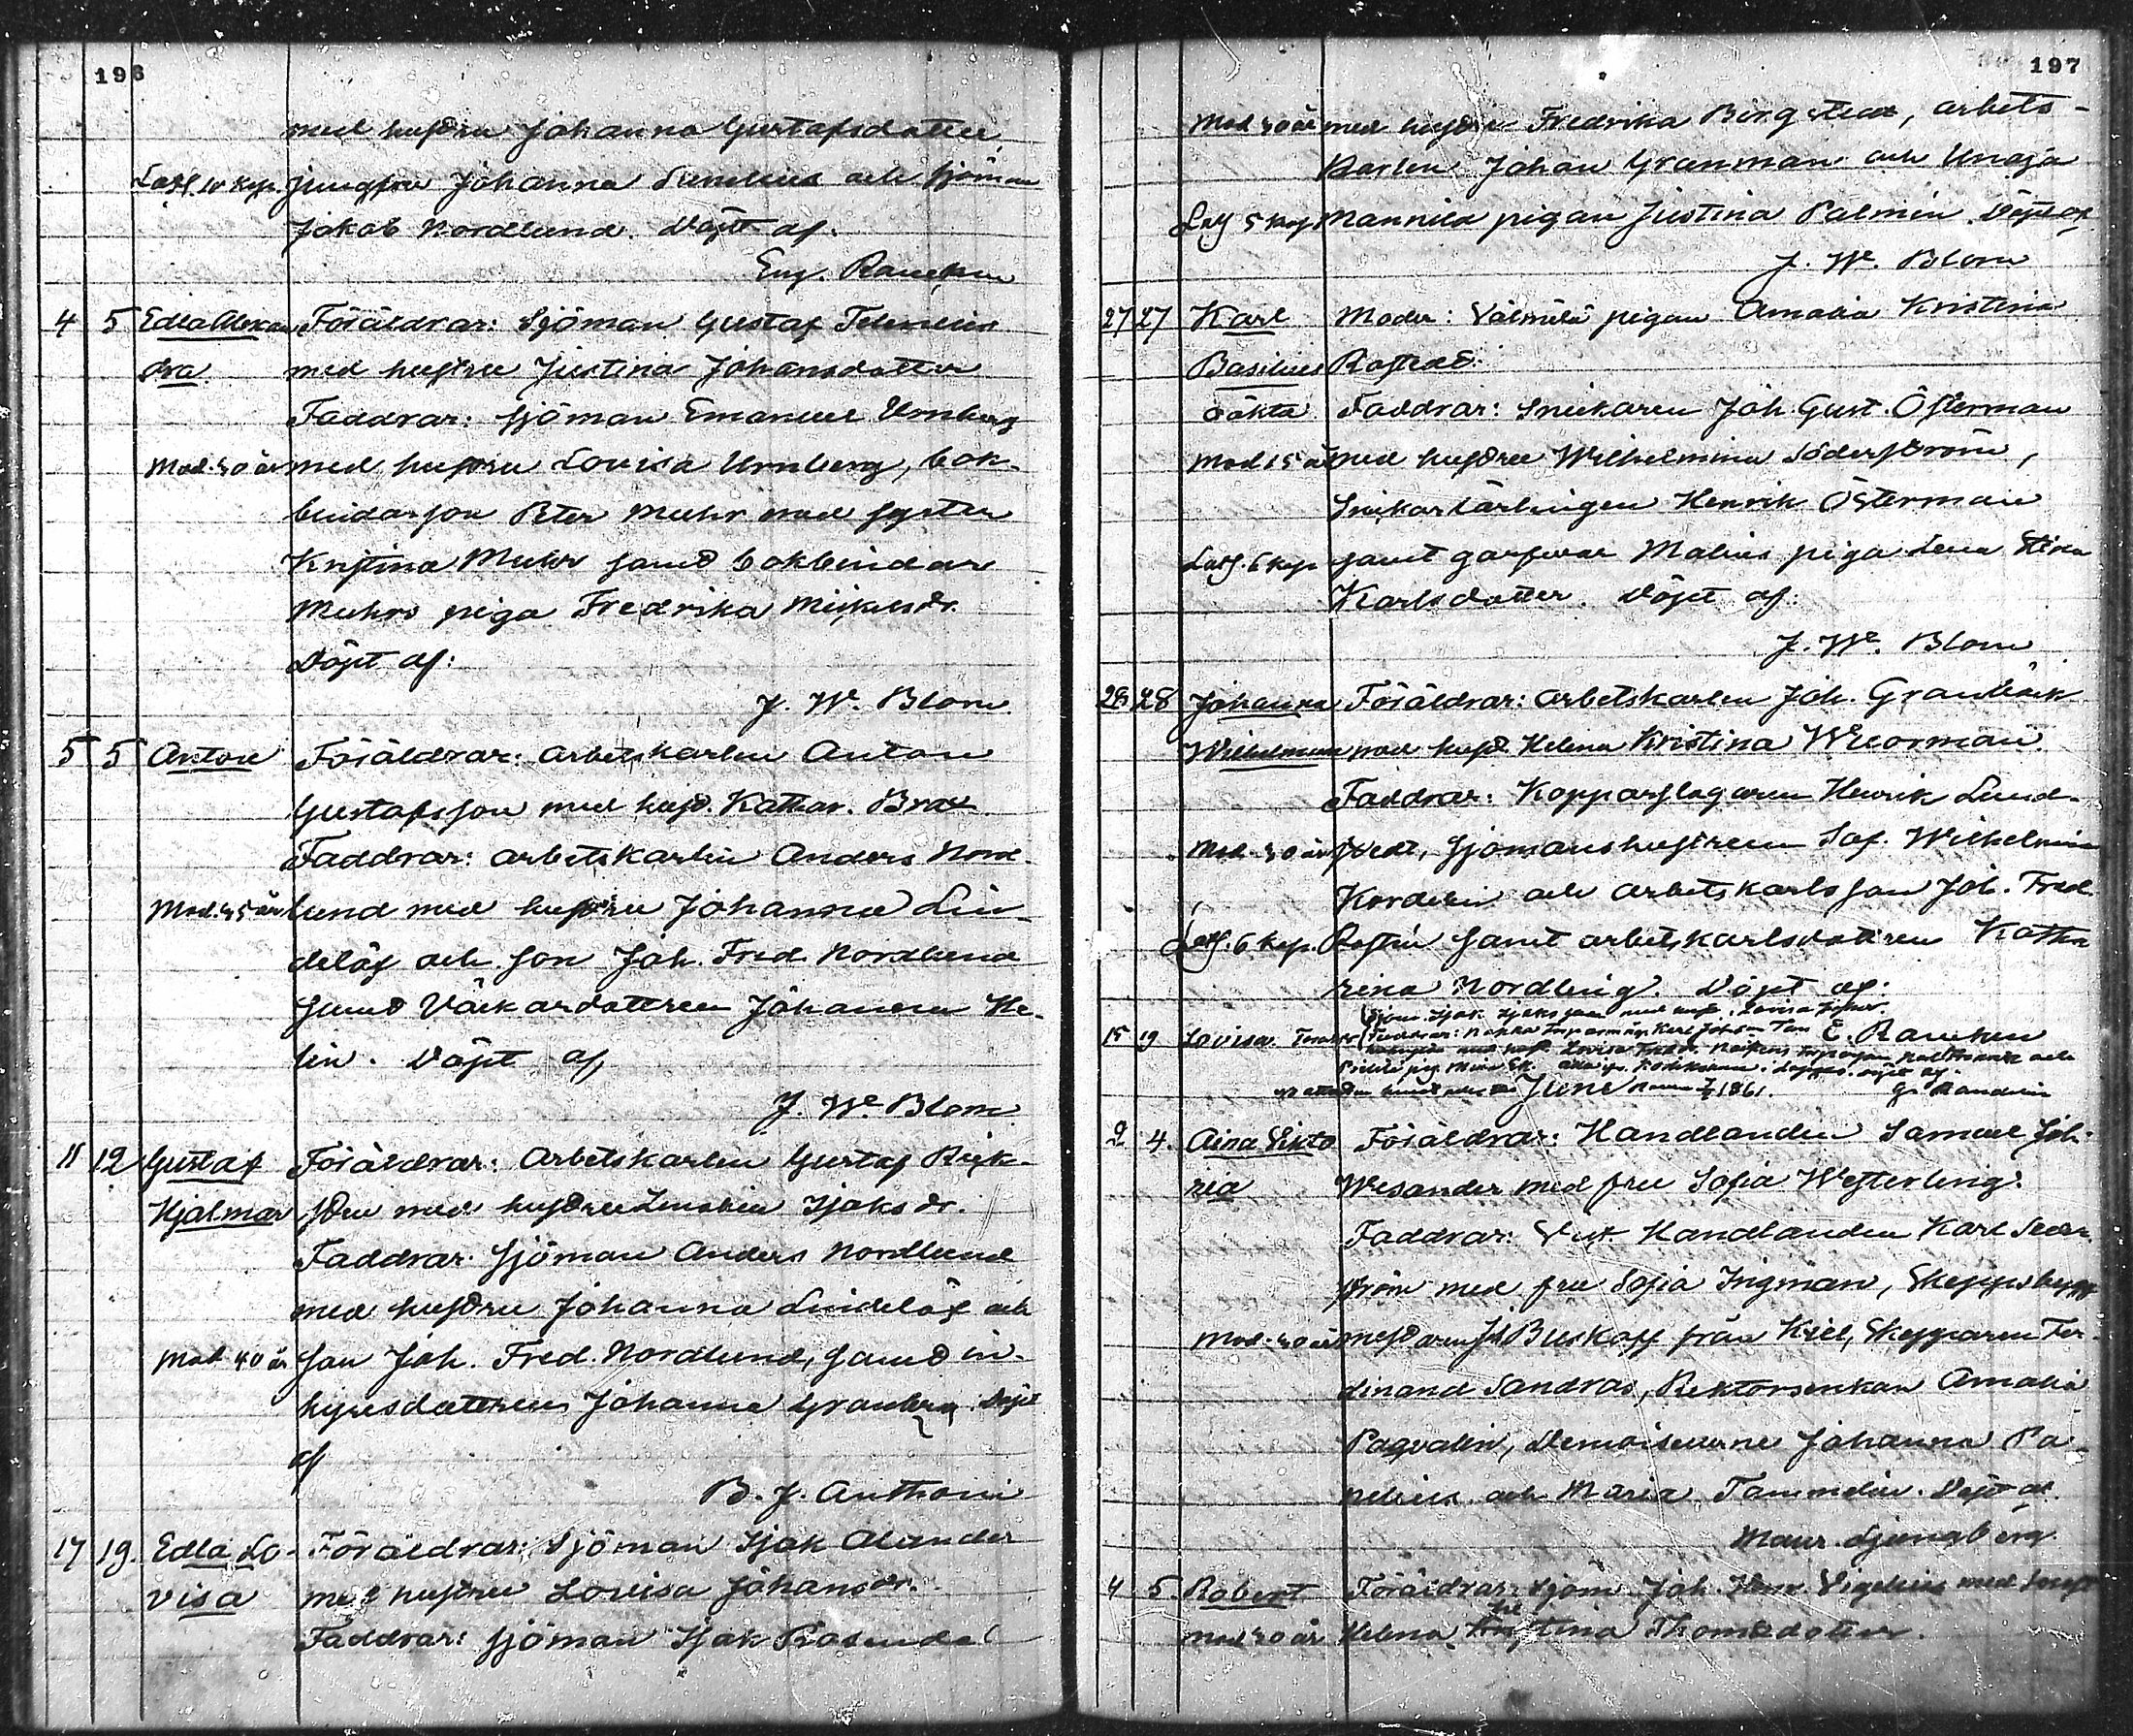 196
med hustru Johanna Gustafsdotter,
Lasf. 10 kop. jungfru Johanna Sunelius och sjöman
Jakob Nordlund. Döpt af.
Eng.
4 5 Edla Alexan Föräldrar: Sjöman Gustaf
dra. med hustru Justina Johansdotter
Faddrar: Sjöman Emanuel Urnberg
Mod. 40 år med hustru Lovisa Urnberg, bok-
bindar son Peter Muhr med syster
Kristina Muhr samt bokbindare
Muhrs piga Fredrika Mickelsdr.
Döpt af:
J. W. Blom.
5 5 Anton Föräldrar: Arbetskarlen Anton
Gustafsson med hust. Kathar. Brax
Faddrar: arbetskarlen Anders Nord-
Mod. 45 år lund med hustru Johanna Lin-
delöf och son Joh. Fred. Nordlund
samt Väckardottren Johanna He-
lin. Döpt af
J. W. Blom
11 12 Gustaf Föräldrar: Arbetskarlen Gustaf
Hjalmar med hustru Isaksdr.
Faddrar: Sjöman Anders Nordlund
med hustru Johanna Lindelöf och
Mod 40 år son Joh. Fred. Nordlund, samt in-
hysesdottren Johanna Granberg. Döpt
af
B. J. Anthoni
17 19. Edla Lo- Föräldrar: Sjöman Isak Alander
visa med hustru Lovisa Johansdr.
Faddrar: Sjöman Isak Rosendal
197
Mod 40 år med hustru Fredrika Bergstedt, arbets-
karlen Johan Granman och Unaja
Lasf 5 kop. Mannila pigan Justina Palmen. Döpt af
J. W. Blom
27 27 Karl Moder: Välmilä pigan Amalia Kristina
Basilius Rostedt.
oäkta Faddrar: Snickaren Joh. Gust. Österman
Mod 15 år med hustru Wilhelmina Söderström,
Snickarlärlingen Henrik Österman
Lasf. 6 kop. samt garfvar Malins piga Lena Stina
Karlsdotter. Döpt af:
J. W. Blom
28 28 Johanna Föräldrar: Arbetskarlen Joh. Granbäck
Wilhelmina med hust. Helena Kristina
Faddrar: Kopparslagaren Henrik Lund-
Mod. 40 år stedt, Sjömanshustrun Sof. Wilhelmina
Kordelin och arbetskarlsson Joh. Fred.
Lasf. 6 kop. Rostin samt arbetskarlsdottren Katha
rina Nordling. Döpt af.
15 19 Lovisa. Föräldr. Sjöm. Isak Isaksson med hust. Lovisa
Faddrar: Karl Johan E.
med hust. Lovisa
och
G. Mandelin
Juni 1861.
2 4. Aina Vikto Föräldrar: Handlanden Samuel Joh.
ria Wesander med fru Sofia Westerling.
Faddrar: Handlanden Karl Seder-
ström med fru Sofia Ingman, Skeppsbygg
Mod. 40 år mästaren Buskoff från Kiel, Skepparen Fer-
dinand Sandras, Rektorsenkan Amalia
Pagvalin, Demoisellerne Johanna Pa-
nelius och Maria Tammelin. Döpt af.
Maur. Ljungberg.
4 5. Robert Föräldrar: Sjöm. Joh. Henr. Sigelius med hust
Mod 40 år Helena Kristina Thomasdotter.